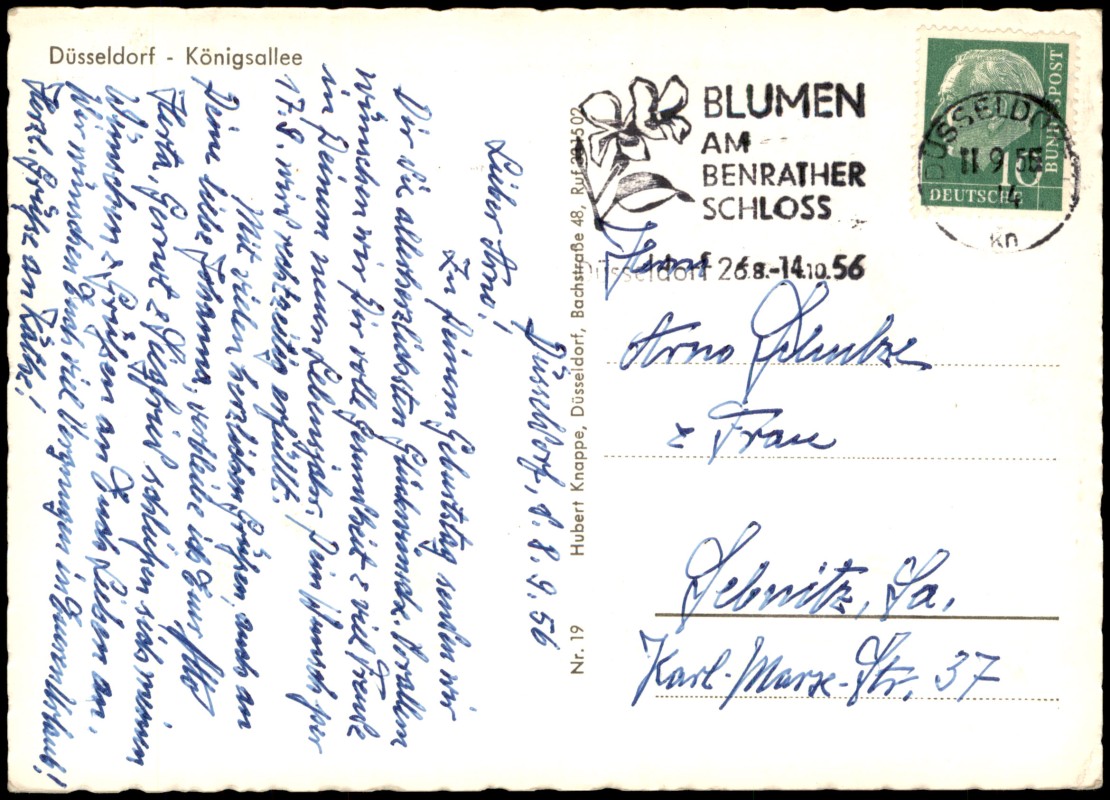 Düsseldorf - Königsallee
Düsseldorf, d. 8.9.56
Lieber Arno!
Zu Deinem Geburtstag senden wir
Dir die allerherzlichsten Glückwünsche. Vor allem
wünschen wir Dir volle Gesundheit & viel Freude
in Deinem neuen Lebensjahr. Dein Wunsch per
17.8. wird rechtzeitig erfüllt.
Mit vielen herzlichen Grüßen, auch an
Deine liebe Johanna, verbleibe ich Euer Otto
Herta, Gernot & Siegfried schließen sich meinen
Wünschen & Grüßen an Euch Lieben an.
Wir wünschen Euch viel Vergnügen in Eurem Urlaub!
Herzl. Grüße an Käthe!
Nr. 19 Hubert Knappe, Düsseldorf, Bachstraße 48, Ruf
BLUMEN
AM
BENRATHER
SCHLOSS
Düsseldorf 26.8.-14.10.56
DÜSSELDO
11 9 56
14
kn
10
DEUTSCHE
BUNDESPOST
Herrn
Arno Schultze
& Frau
Sebnitz, Sa.
Karl-Marx-Str. 37